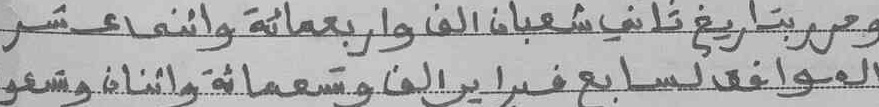 وحرر بتاريخ ثاني شعبان الف واربعمائة واثنى عشر
الموافق لسابع فبراير الف وتسعمائة واثنان وتسعو